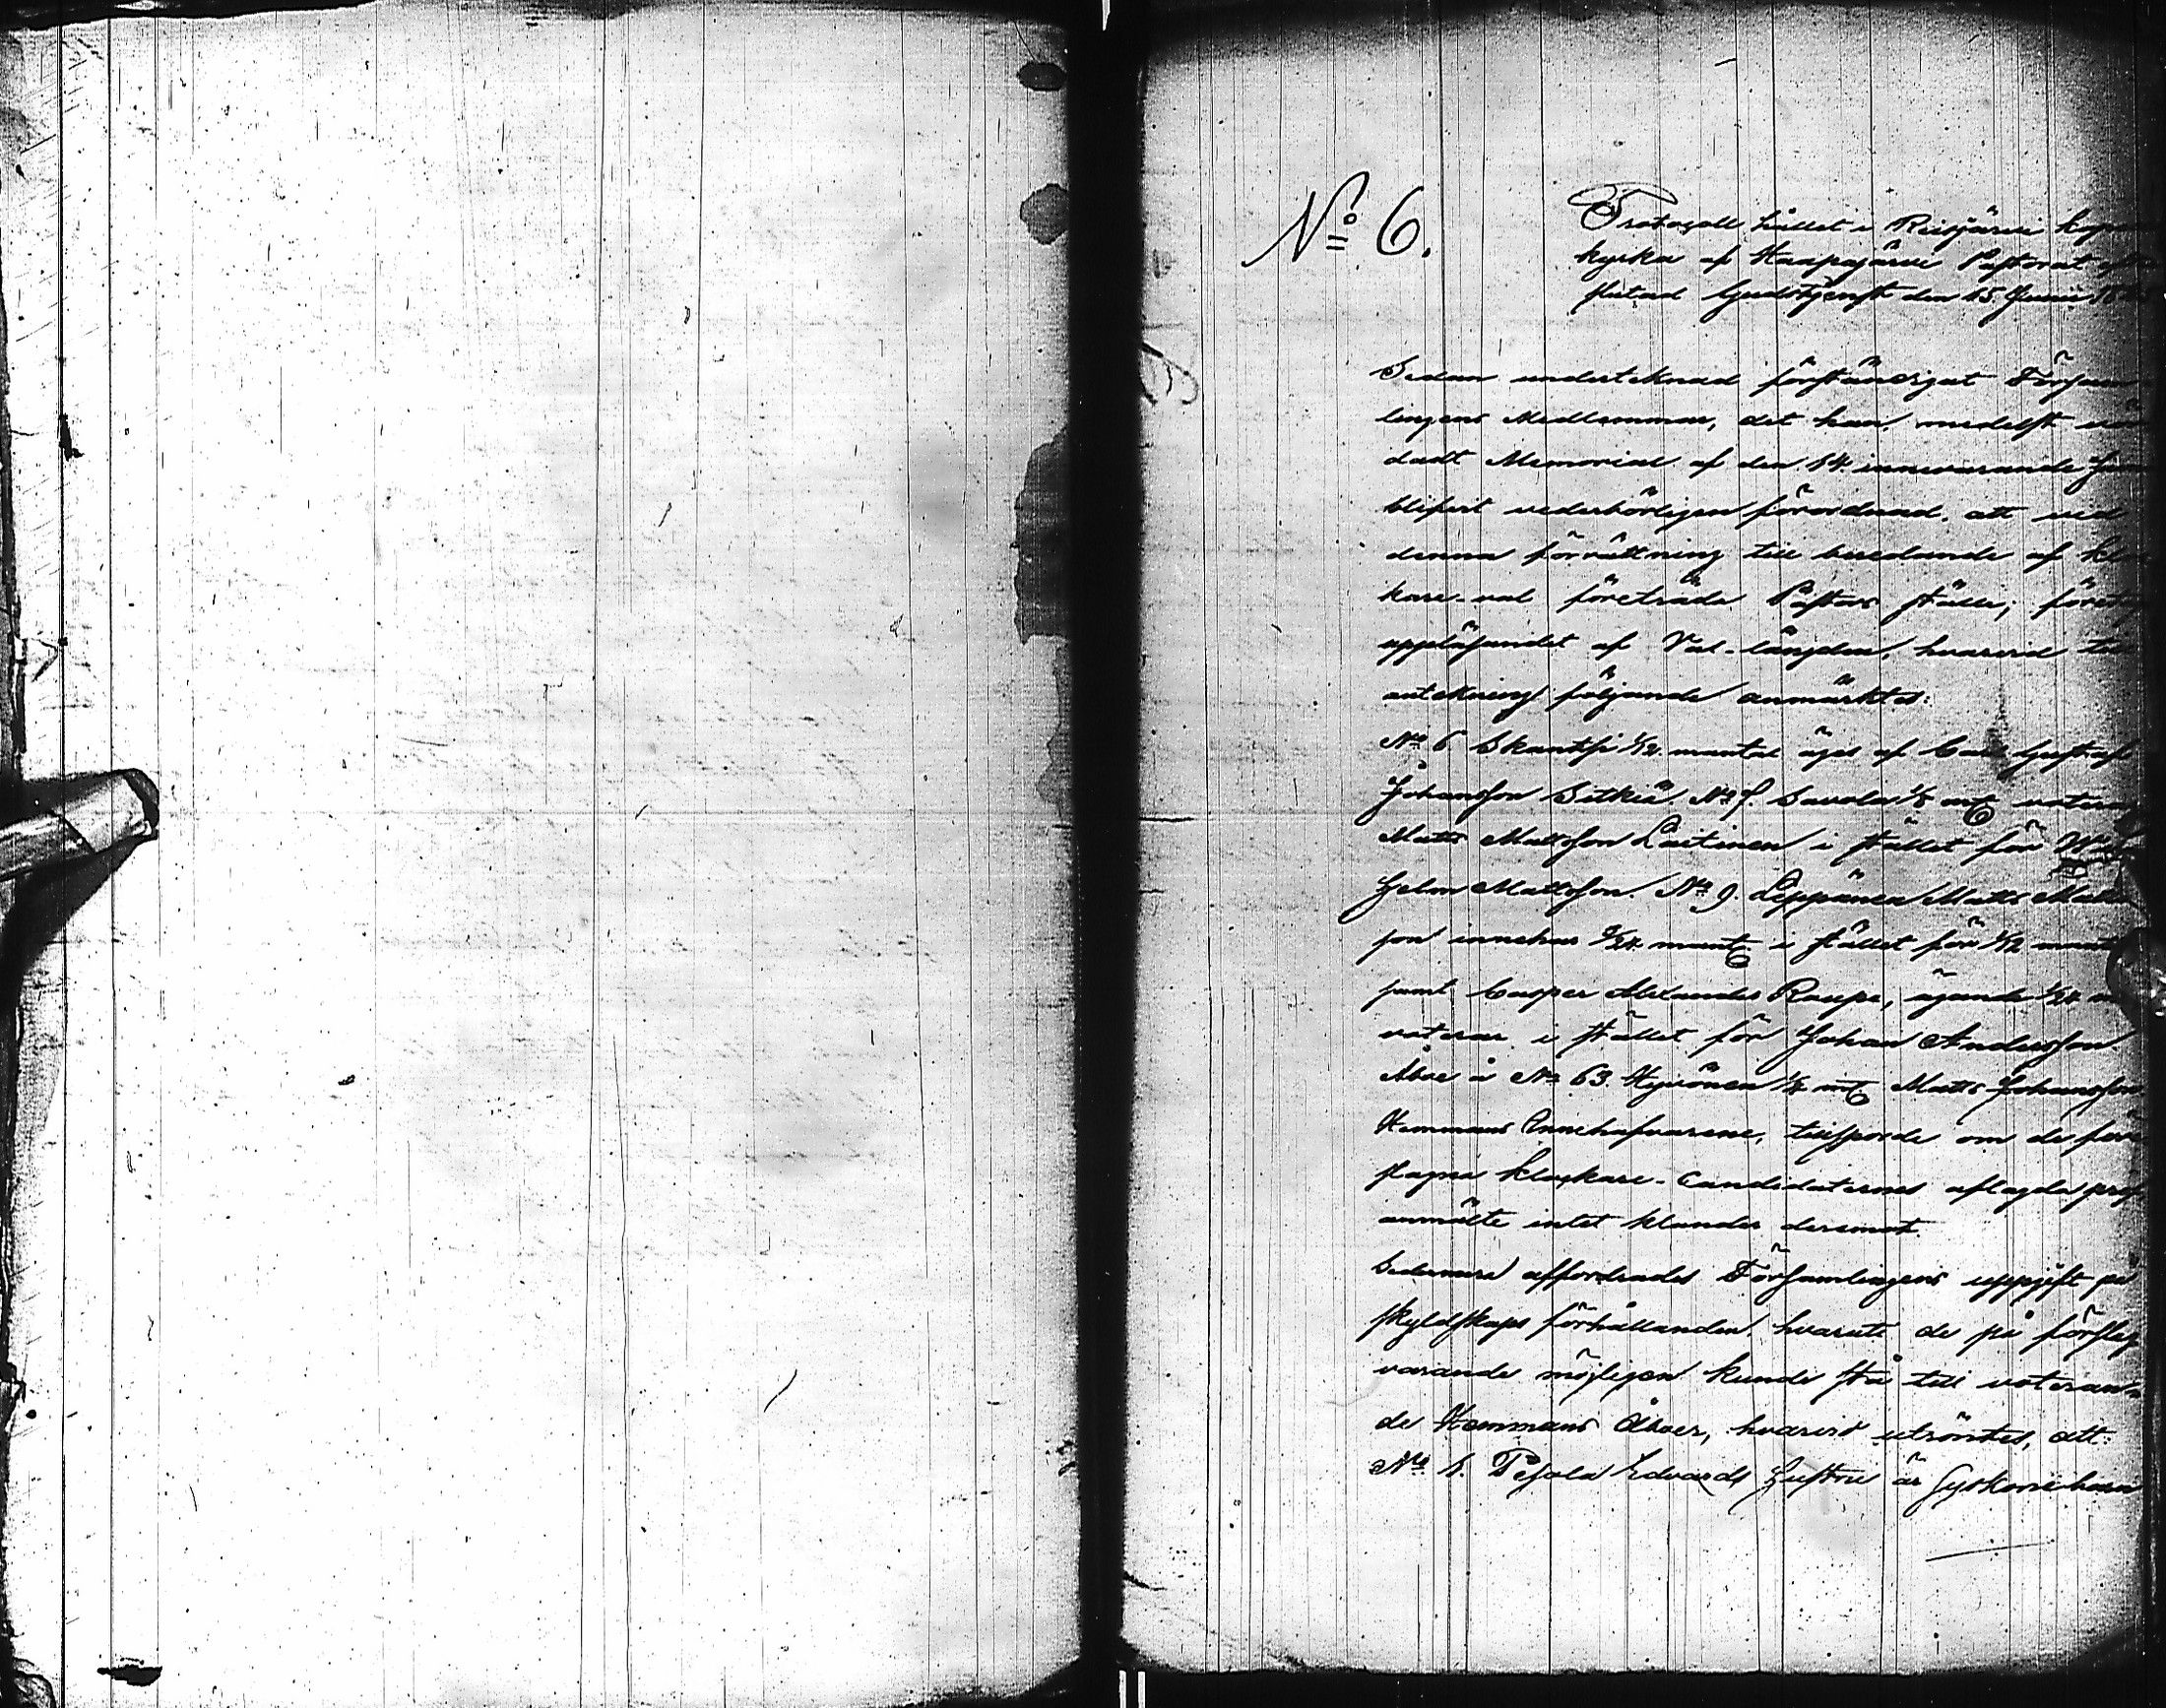 No 6.
Protocoll hållet i Reisjärvi
kyrka af Haapajärvi Pastorat
slutad Gudstjenst den 15 Junii
Sedan undertecknad förständigat Försam-
lingens Medlemmar, det han, medelst
dadt Memorial af den 14 innevarande
blifvit vederbörligen förordnad, att vid
denna förrättning till beredande af
kare-val företräda Pastors ställe;
uppläsandet af Val-längden, hvarvid
antekning följande anmärktes:
No 6 Skantsi 1/12 mantal äges af Carl Gustaf
Johansson Sitkiä. No 7. Savola
Matts Mattsson Laitinen i stället för
helm Mattsson. No 9. Leppänen Matts
son innehar mant i stället för 1/12
samt Casper Alexander Raupe, ägande 1/24
voterar i stället för Johan Andersson
Åboe å No 63 Hyvönen Matts Johansson
Hemmans Innehafvarene, tillsporde om de
slagna klockare-Candidaternes aflagda
anmälte intet klander deremot.
Sedermera affordrades Församlingens uppgift på
skyldskaps förhållanden, hvaruti de på
varande möjligen kunde stå till voteran-
de Hemmans Åboer, hvarvid utröntes, att:
No 1. Pesola Edvards hustru är Syskonebarn